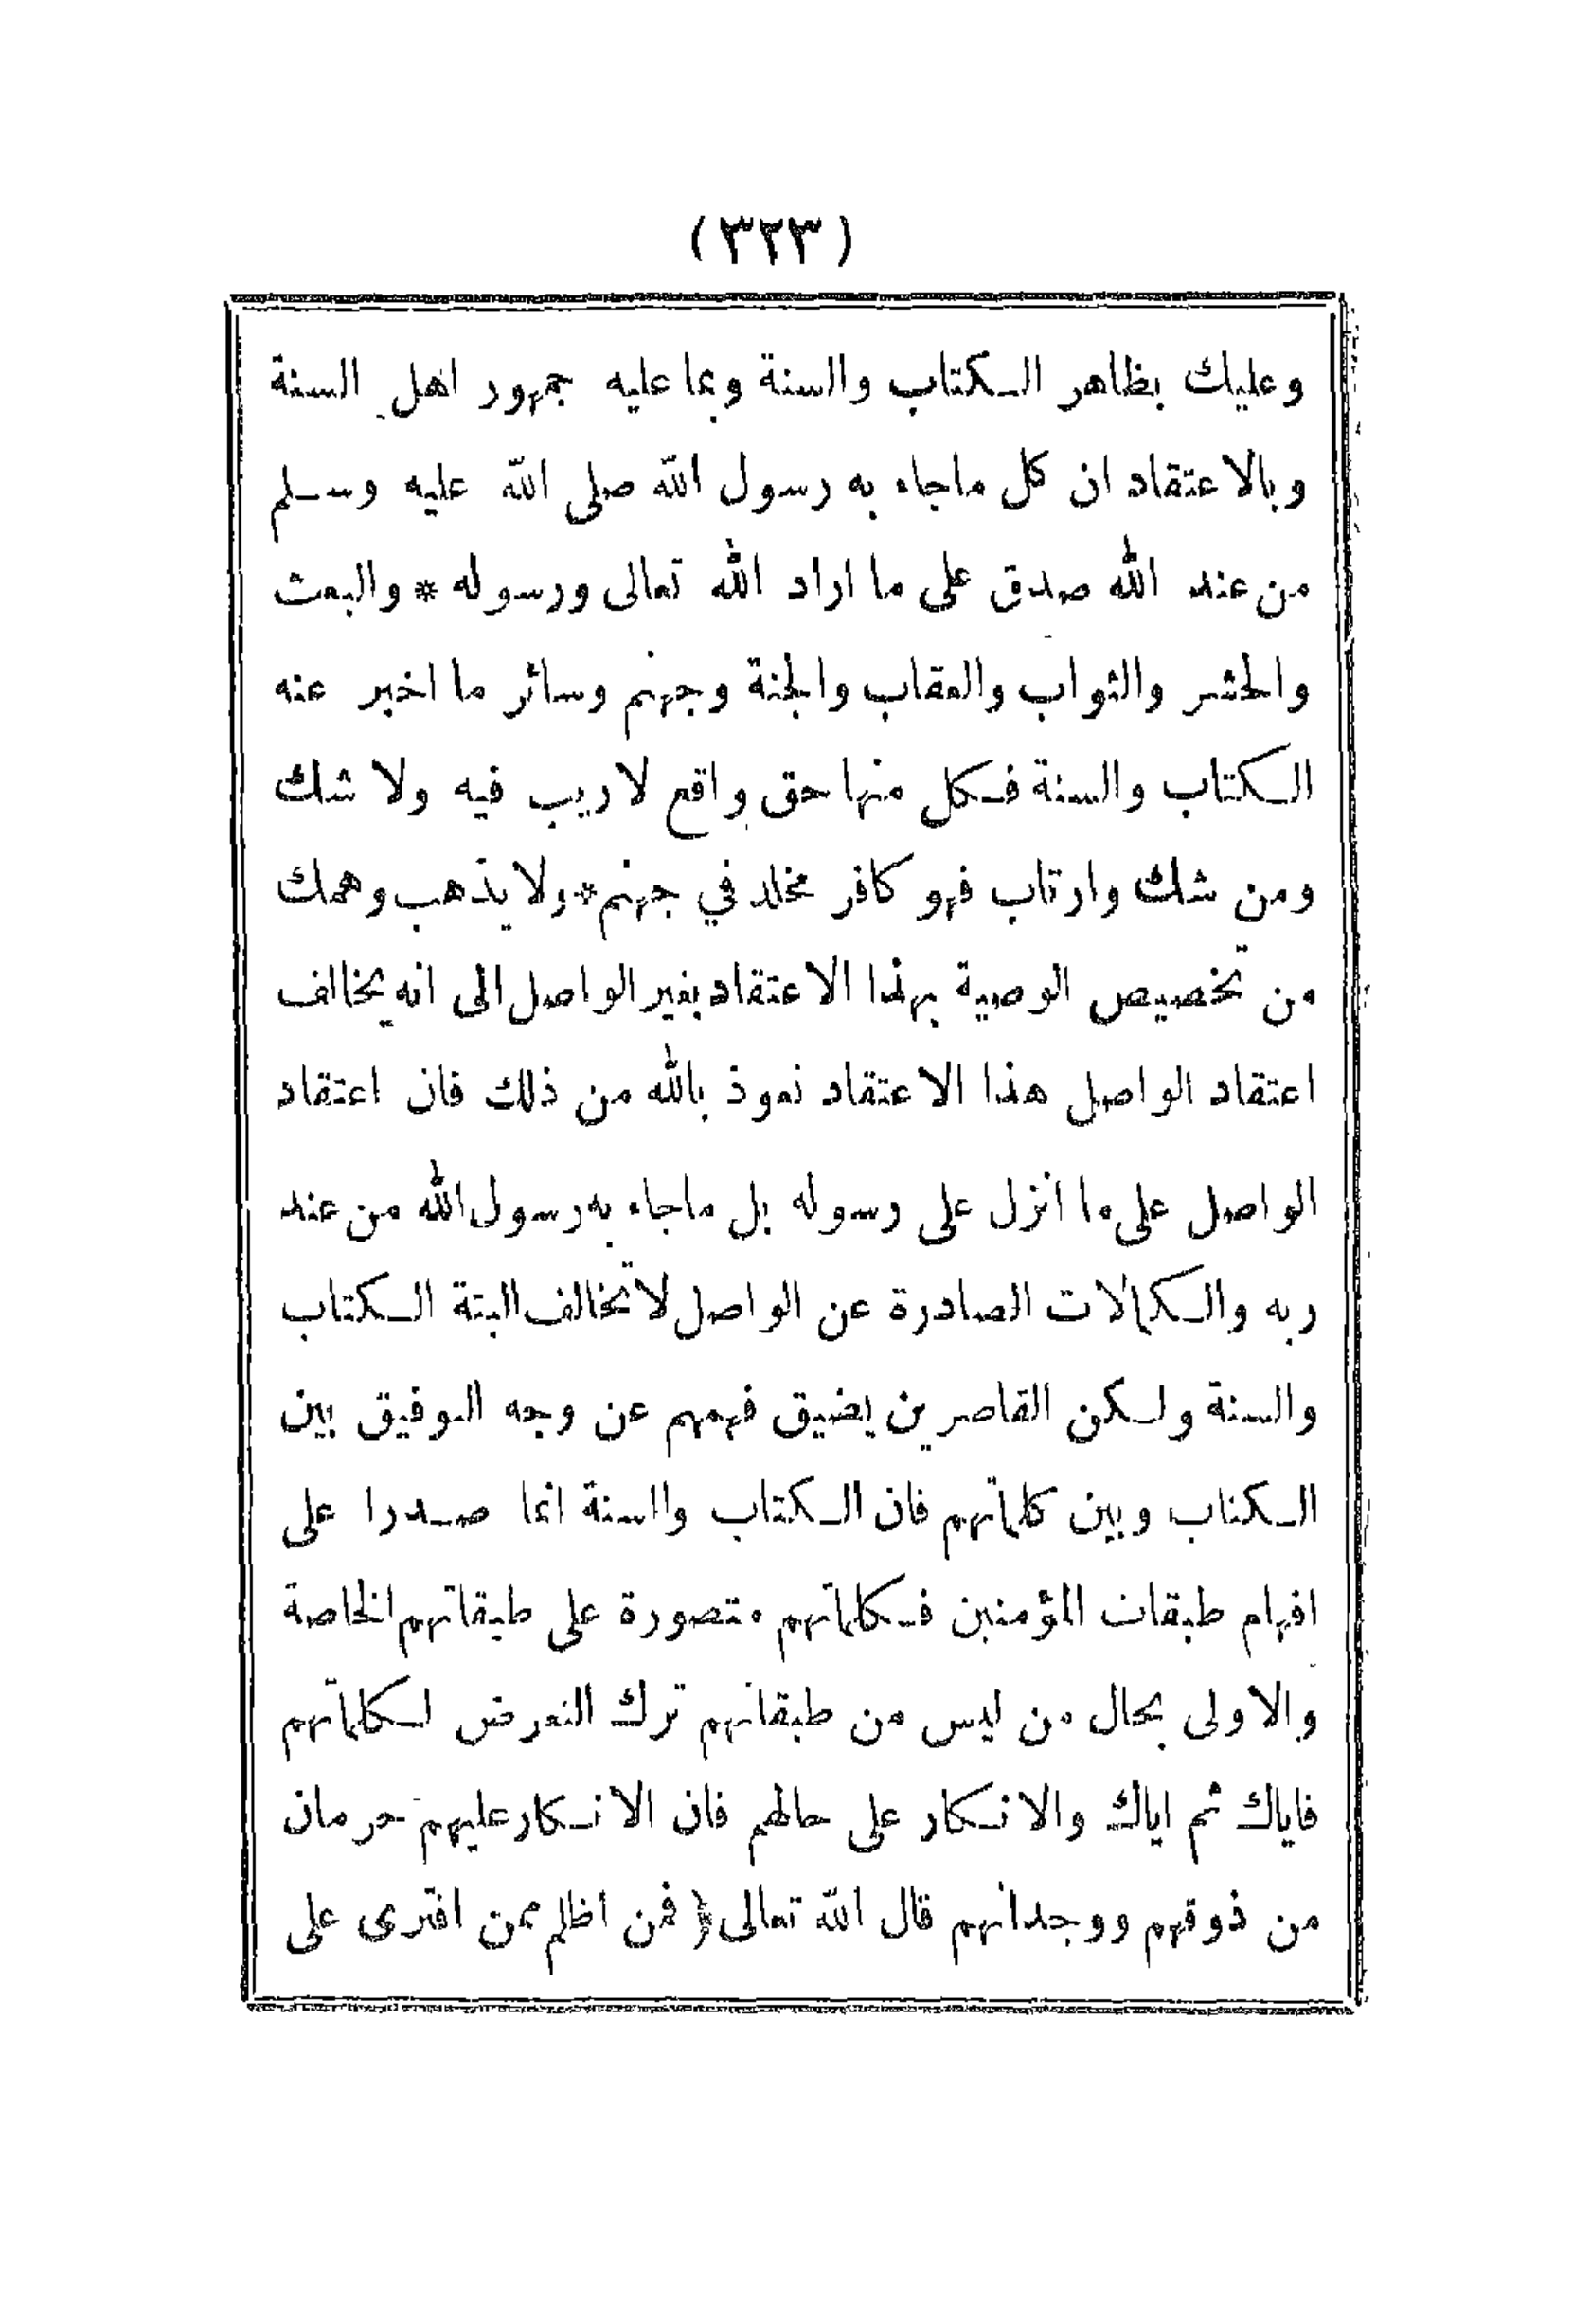 (٣٢٣)
وعليك بظاهر الكتاب والسنة وبما عليه جمهور اهل السنة
وبالاعتقاد ان كل ماجاء به رسول الله صلى الله عليه وسلم
من عند الله صدق على ما اراد الله تعالى ورسوله * والبعث
والحشر والثواب والعقاب والجنة وجهنم وسائر ما اخبر عنه
الكتاب والسنة فكل منها حق واقع لاريب فيه ولا شك
ومن شك وارتاب فهو كافر مخلد في جهنم * ولا يذهب وهمك
من تخصيص الوصية بهذا الاعتقاد بغير الواصل الى انه يخالف
اعتقاد الواصل هذا الاعتقاد نعوذ بالله من ذلك فان اعتقاد
الواصل على ما انزل على رسوله بل ماجاء به رسول الله من عند
ربه والكمالات الصادرة عن الواصل لا تخالف البتة الكتاب
والسنة ولكن القاصرين يضيق فهمهم عن وجه التوفيق بين
الكتاب وبين كلماتهم فان الكتاب والسنة انما صدرا على
افهام طبقات المؤمنين فكلماتهم متصورة على طبقاتهم الخاصة
والاولى بحال من ليس من طبقاتهم ترك التعرض لكلماتهم
فاياك ثم اياك والانكار على حالهم فان الانكار عليهم حرمان
من ذوقهم ووجدانهم قال الله تعالى ﴿ فمن اظلم ممن افترى على